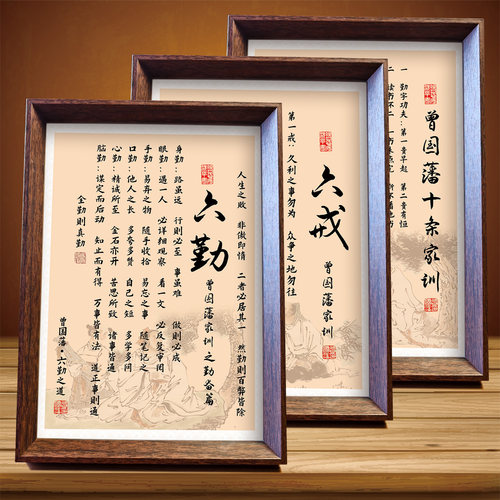 人生之败 非傲即惰 二者必居其一 然勤则百弊皆除
六勤
曾国藩家训之勤奋篇
身勤:路虽远 行则必至 事虽难 做则必成
眼勤:遇一人 必详细观察 看一文 必反复审阅
手勤:易弃之物 随手收拾 易忘之事 随笔记之
口勤:他人之长 多夸多赞 自己之短 多学多问
心勤:精诚所至 金石亦开 苦思所致 诸事皆通
脑勤:谋定而后动 知止而有得 万事皆有法 道正事则通
全勤则真勤
曾国藩·六勤之道
六戒
曾国藩家训
第一戒:久利之事勿为 众争之地勿往
曾国藩十条家训
一 勤字功夫:第一贵早起 第二贵有恒